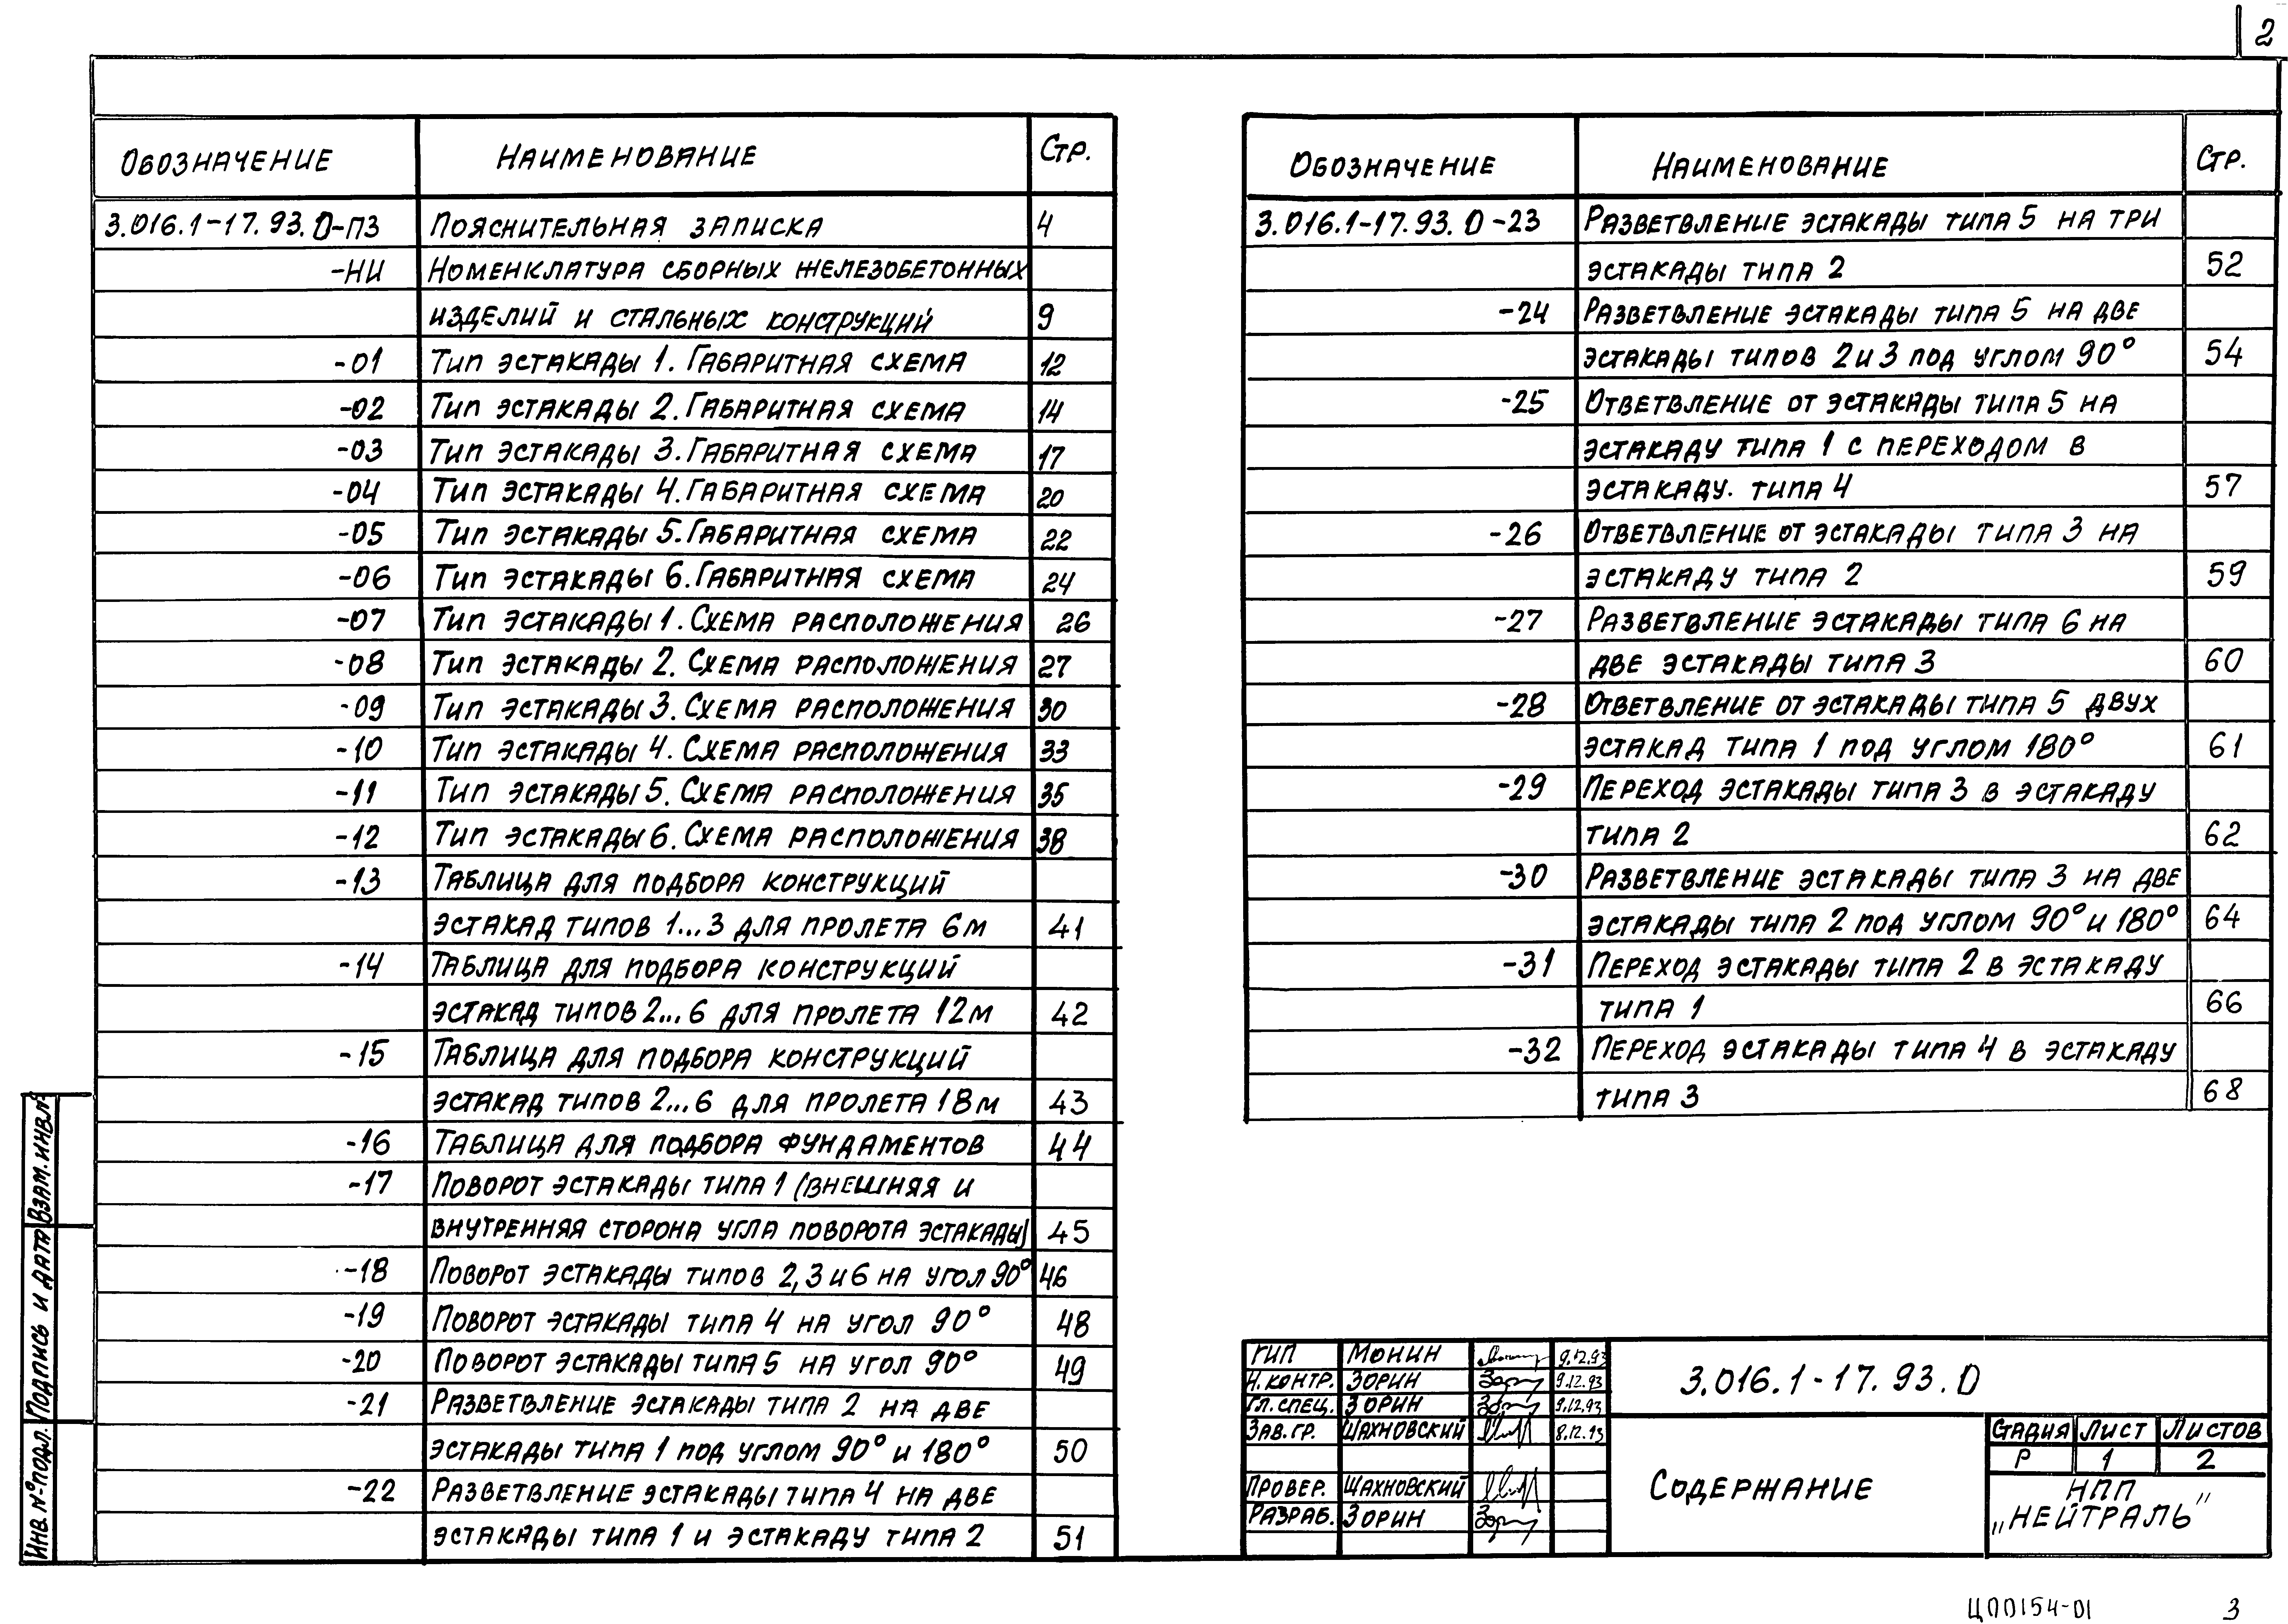 2
Обозначение Наименование Стр.
3.016.1-17.93.0-ПЗ Пояснительная записка 4
-НИ Номенклатура сборных железобетонных
изделий и стальных конструкций 9
-01 Тип эстакады 1. Габаритная схема 12
-02 Тип эстакады 2. Габаритная схема 14
-03 Тип эстакады 3. Габаритная схема 17
-04 Тип эстакады 4. Габаритная схема 20
-05 Тип эстакады 5. Габаритная схема 22
-06 Тип эстакады 6. Габаритная схема 24
-07 Тип эстакады 1. Схема расположения 26
-08 Тип эстакады 2. Схема расположения 27
-09 Тип эстакады 3. Схема расположения 30
-10 Тип эстакады 4. Схема расположения 33
-11 Тип эстакады 5. Схема расположения 35
-12 Тип эстакады 6. Схема расположения 38
-13 Таблица для подбора конструкций
эстакад типов 1...3 для пролета 6м 41
-14 Таблица для подбора конструкций
эстакад типов 2...6 для пролета 12м 42
-15 Таблица для подбора конструкций
эстакад типов 2...6 для пролета 18м 43
-16 Таблица для подбора фундаментов 44
-17 Поворот эстакады типа 1 (внешняя и
внутренняя сторона угла поворота эстакады) 45
-18 Поворот эстакады типов 2,3 и 6 на угол 90° 46
-19 Поворот эстакады типа 4 на угол 90° 48
-20 Поворот эстакады типа 5 на угол 90° 49
-21 Разветвление эстакады типа 2 на две
эстакады типа 1 под углом 90° и 180° 50
-22 Разветвление эстакады типа 4 на две
эстакады типа 1 и эстакаду типа 2 51
Обозначение Наименование Стр.
3.016.1-17.93.0-23 Разветвление эстакады типа 5 на три
эстакады типа 2 52
-24 Разветвление эстакады типа 5 на две
эстакады типов 2 и 3 под углом 90° 54
-25 Ответвление от эстакады типа 5 на
эстакаду типа 1 с переходом в
эстакаду. типа 4 57
-26 Ответвление от эстакады типа 3 на
эстакаду типа 2 59
-27 Разветвление эстакады типа 6 на
две эстакады типа 3 60
-28 Ответвление от эстакады типа 5 двух
эстакад типа 1 под углом 180° 61
-29 Переход эстакады типа 3 в эстакаду
типа 2 62
-30 Разветвление эстакады типа 3 на две
эстакады типа 2 под углом 90° и 180° 64
-31 Переход эстакады типа 2 в эстакаду
типа 1 66
-32 Переход эстакады типа 4 в эстакаду
типа 3 68
Взам. инв.№
Подпись и дата
Инв. № подл.
ГИП Монин 9.12.93
Н.контр. Зорин 9.12.93
Гл.спец. Зорин 9.12.93
Зав.гр. Шахновский 8.12.93
Провер. Шахновский
Разраб. Зорин
3.016.1-17.93.0
Содержание
Стадия Лист Листов
Р 1 2
НПП
„Нейтраль"
ЦП0154-01 3